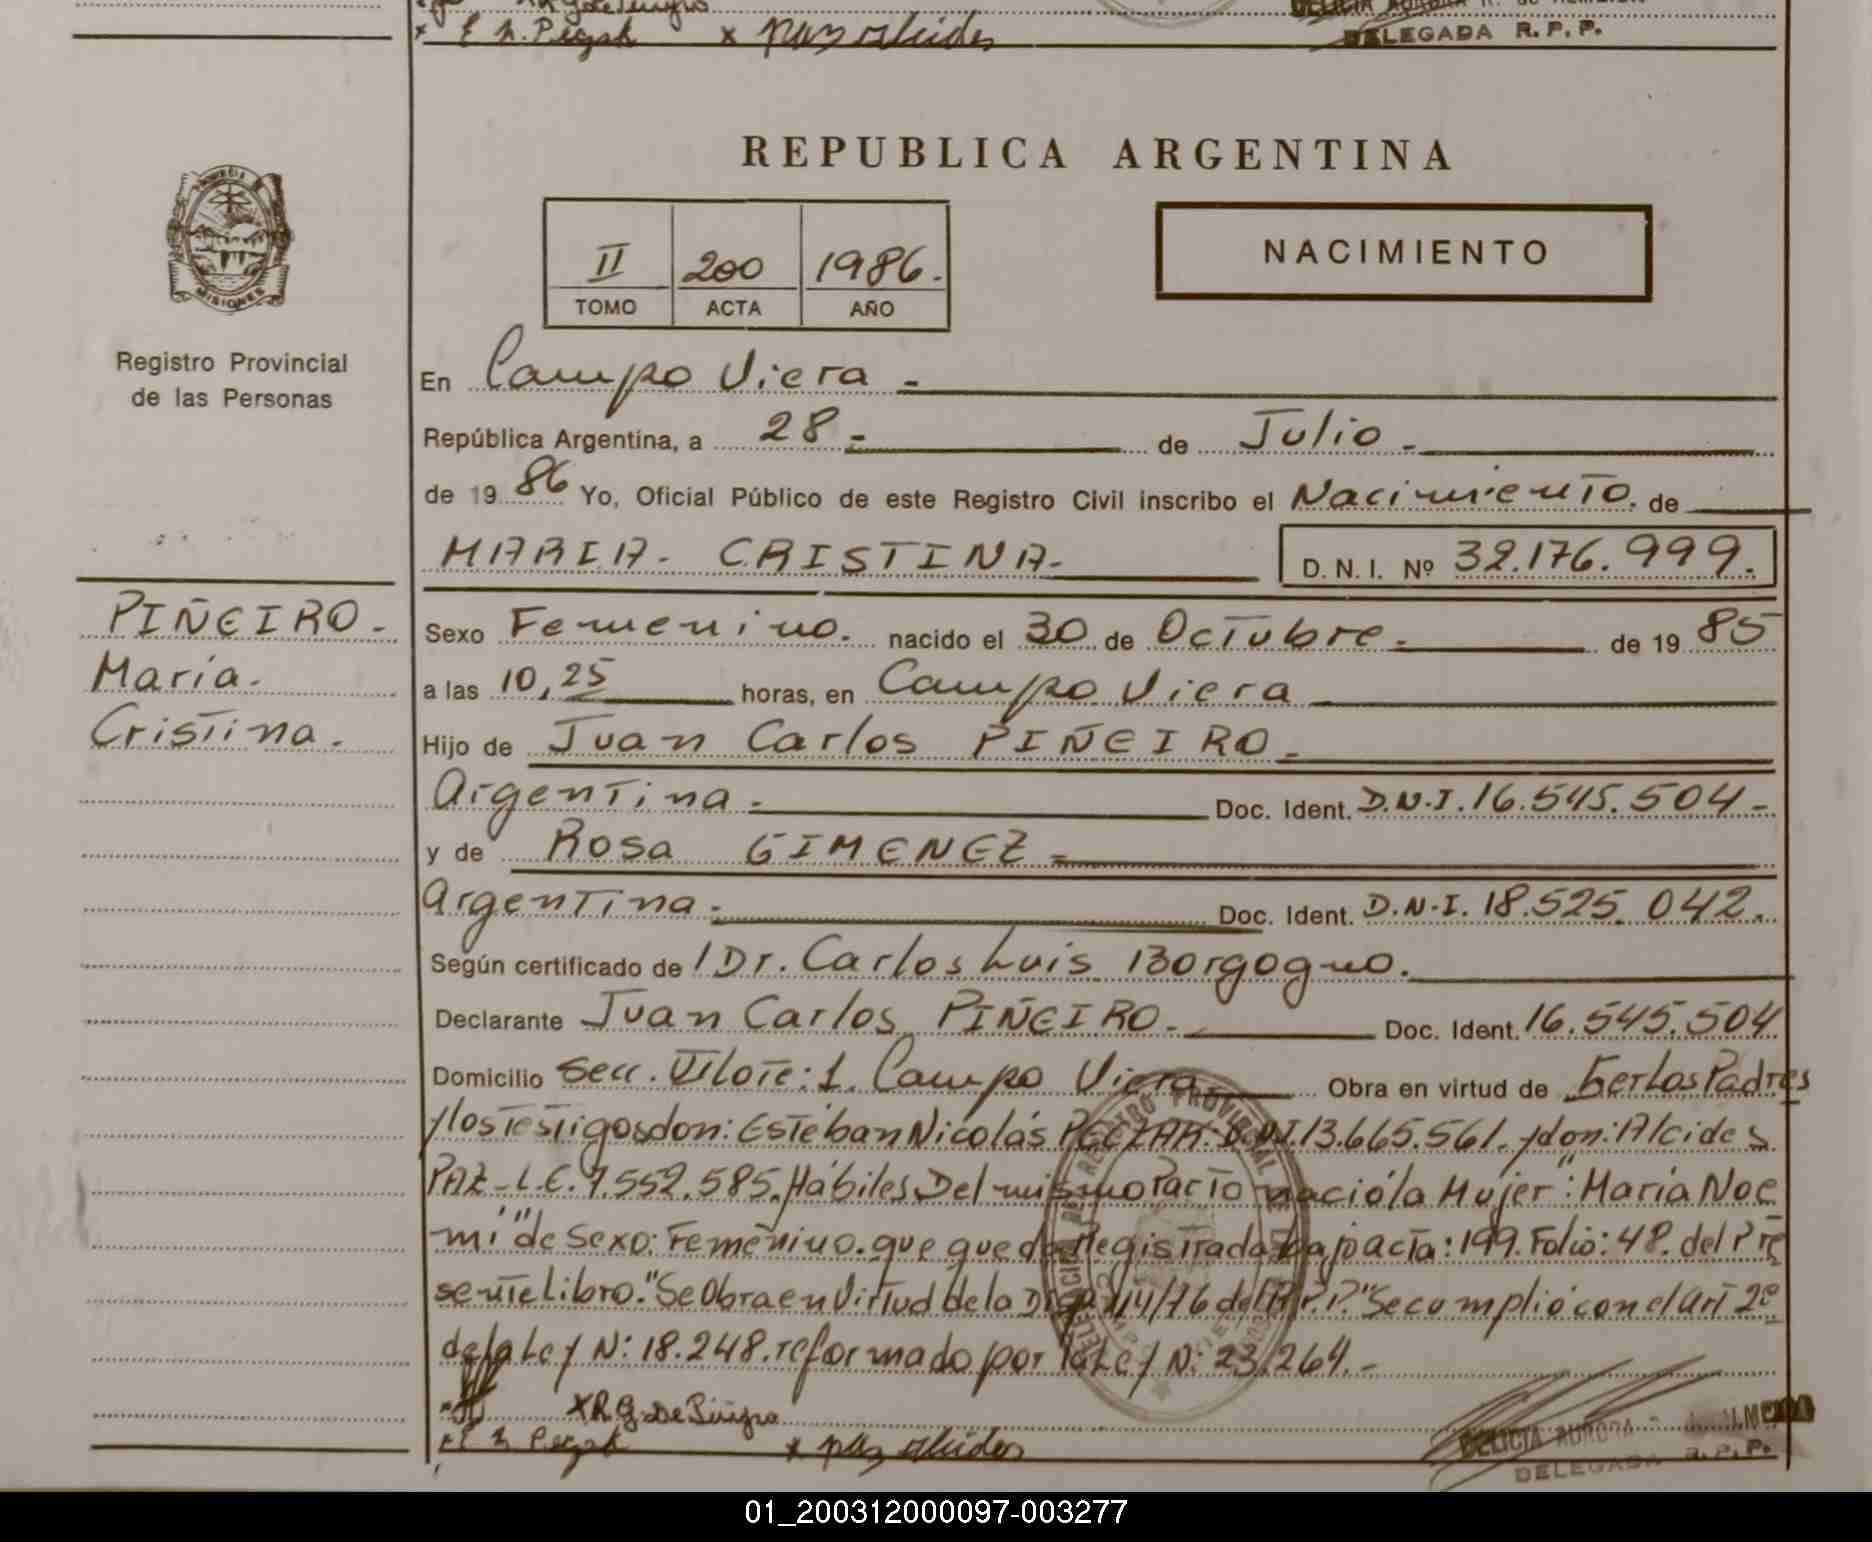 x E N. Peczak x paz alcides
DELEGADA R. P. P.
REPUBLICA ARGENTINA
MISIONES
II 200 1986.
TOMO ACTA AÑO
NACIMIENTO
Registro Provincial
de las Personas
En Campo Viera -
República Argentina, a 28 - de Julio -
de 19 86 Yo, Oficial Público de este Registro Civil inscribo el Nacimiento. de
MARIA - CRISTINA - D. N. I. Nº 32.176.999.
PIÑEIRO -
María.
Cristina.
Sexo Femenino. nacido el 30 de Octubre. de 19 85
a las 10,25 horas, en Campo Viera
Hijo de Juan Carlos PIÑEIRO -
Argentina - Doc. Ident. D.N.I. 16.545.504 -
y de Rosa GIMENEZ -
Argentina - Doc. Ident. D.N.I. 18.525.042.
Según certificado de / Dr. Carlos Luis Borgogno.
Declarante Juan Carlos PIÑEIRO - Doc. Ident. 16.545.504
Domicilio Secc. VI Lote: 1. Campo Viera Obra en virtud de Ser los Padres
y los Testigos don: Estéban Nicolás PECZAK. D.N.I. 13.665.561. y don: Alcides
PAZ - L.E. 7.552.585. Hábiles Del mismo Parto nació la Mujer": María Noe
mí" de Sexo: Femenino. que queda Registrada bajo acta: 199. Folio: 48. del Pre
sente Libro. "Se Obra en Virtud de la Disp. 114/76 del R.P.P." Se cumplió con el Art 2º
de la Ley N: 18.248. reformado por la Ley N: 23.264. -
x R. G. De Piñeiro
x E N Peczak x paz alcides
DELICIA AURORA
DELEGADA R. P. P.
01_200312000097-003277